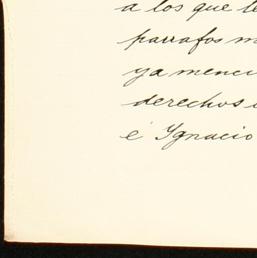 a los que le
parrafos m
ya menci
derechos
é Ygnacio